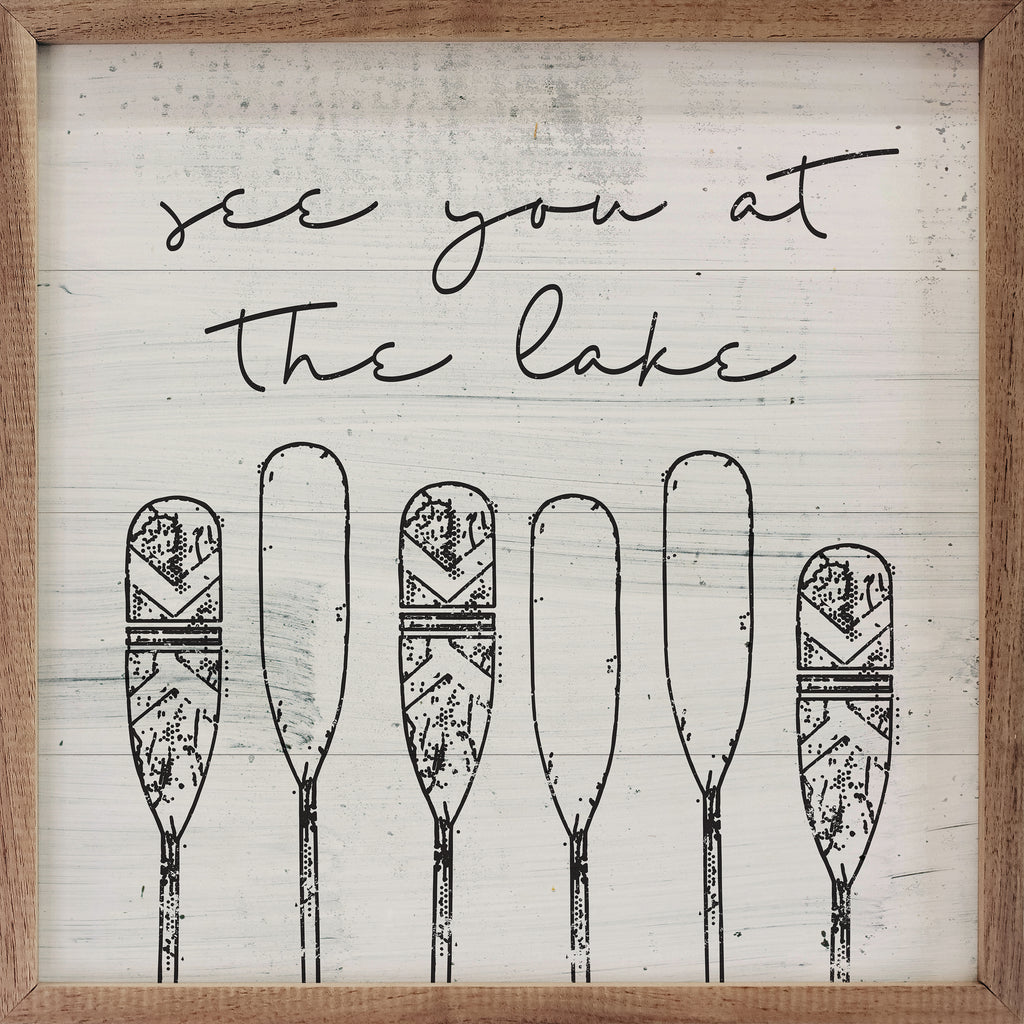 see you at
the lake